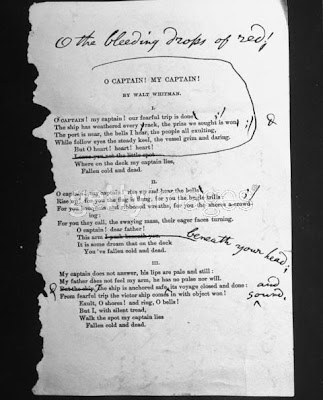 O the bleeding drops of red!
O CAPTAIN! MY CAPTAIN!
BY WALT WHITMAN.
I.
O CAPTAIN! my captain! our fearful trip is done
The ship has weathered every rack, the prize we sought is won
The port is near, the bells I hear, the people all exulting,
While follow eyes the steady keel, the vessel grim and daring.
But O heart! heart! heart!
Leave you not the little spot
Where on the deck my captain lies,
Fallen cold and dead.
II.
O captain! my captain! rise up and hear the bells
Rise up! for you the flag is flung, for you the bugle trills
For you bouquets and ribboned wreaths, for you the shores a-crowd-
ing:
For you they call, the swaying mass, their eager faces turning.
O captain! dear father!
This arm I push beneath you beneath your head;
It is some dream that on the deck
You've fallen cold and dead.
III.
My captain does not answer, his lips are pale and still:
My father does not feel my arm, he has no pulse nor will.
But the ship, The ship is anchored safe, its voyage closed and done: and sound.
From fearful trip the victor ship comes in with object won!
Exult, O shores! and ring, O bells!
But I, with silent tread,
Walk the spot my captain lies
Fallen cold and dead.